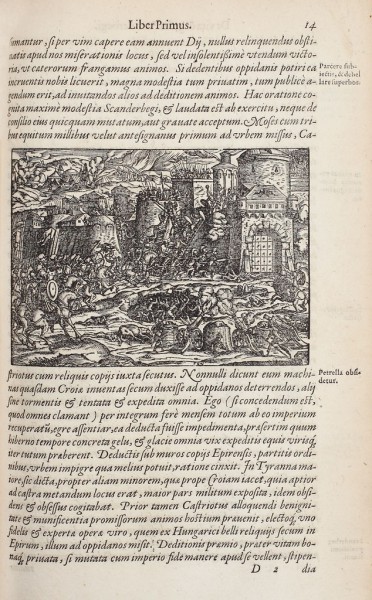 Liber Primus. 14
firmantur, si per vim capere eam annuent Dij, nullus relinquendus obsti-
natis apud nos miserationis locus, sed vel insolentißimè vtendum victo-
ria, vt cæterorum frangamus animos. Si dedentibus oppidanis potiri ea
incruentis nobis licuerit, magna modestia tum priuatim, tum publicè a-
gendum erit, ad inuitandos alios ad deditionem animos. Hac oratione co-
gnita maximè modestia Scanderbegi, & laudata est ab exercitu, neque de
consilio eius quicquam mutatum, aut grauatè acceptum. Moses cum tri-
bus equitum millibus velut antesignanus primum ad vrbem missus, Ca-
Parcere sub-
iectis, & debel
lare superbos.
striotus cum reliquis copijs iuxta secutus. Nonnulli dicunt eum machi-
nas quasdam Croiæ inuentas secum duxisse ad oppidanos deterrendos, alij
sine tormentis & tentata & expedita omnia. Ego (si concedendum est,
quod omnes clamant) per integrum ferè mensem totum ab eo imperium
recuperatũ, ægre assentiar, ea deducta fuisse impedimenta, præsertim quum
hiberno tempore concreta gelu, & glacie omnia vix expeditis equis virisq́;
iter tutum præberent. Deductis sub muros copijs Epirensis, partitis ordi-
nibus, vrbem impigrè qua melius potuit, ratione cinxit. In Tyranna ma-
iore, sic dicta, propter aliam minorem, quæ prope Croiam iacet, quia aptior
ad castra metandum locus erat, maior pars militum exposita, idem obsi-
dens & obsessus cogitabat. Prior tamen Castriotus alloquendi benigni-
tate & munificentia promissorum animos hostium præuenit, electoq́; vno
fidelis & experta operæ viro, quem ex Hungarici belli reliquijs secum in
Epirum, illum ad oppidanos misit. Deditionis præmio, præter vitam bo-
naq́; priuata, si mutata cum imperio fide manere apud se vellent, stipen-
Petrella obsi-
detur.
D 2 dia